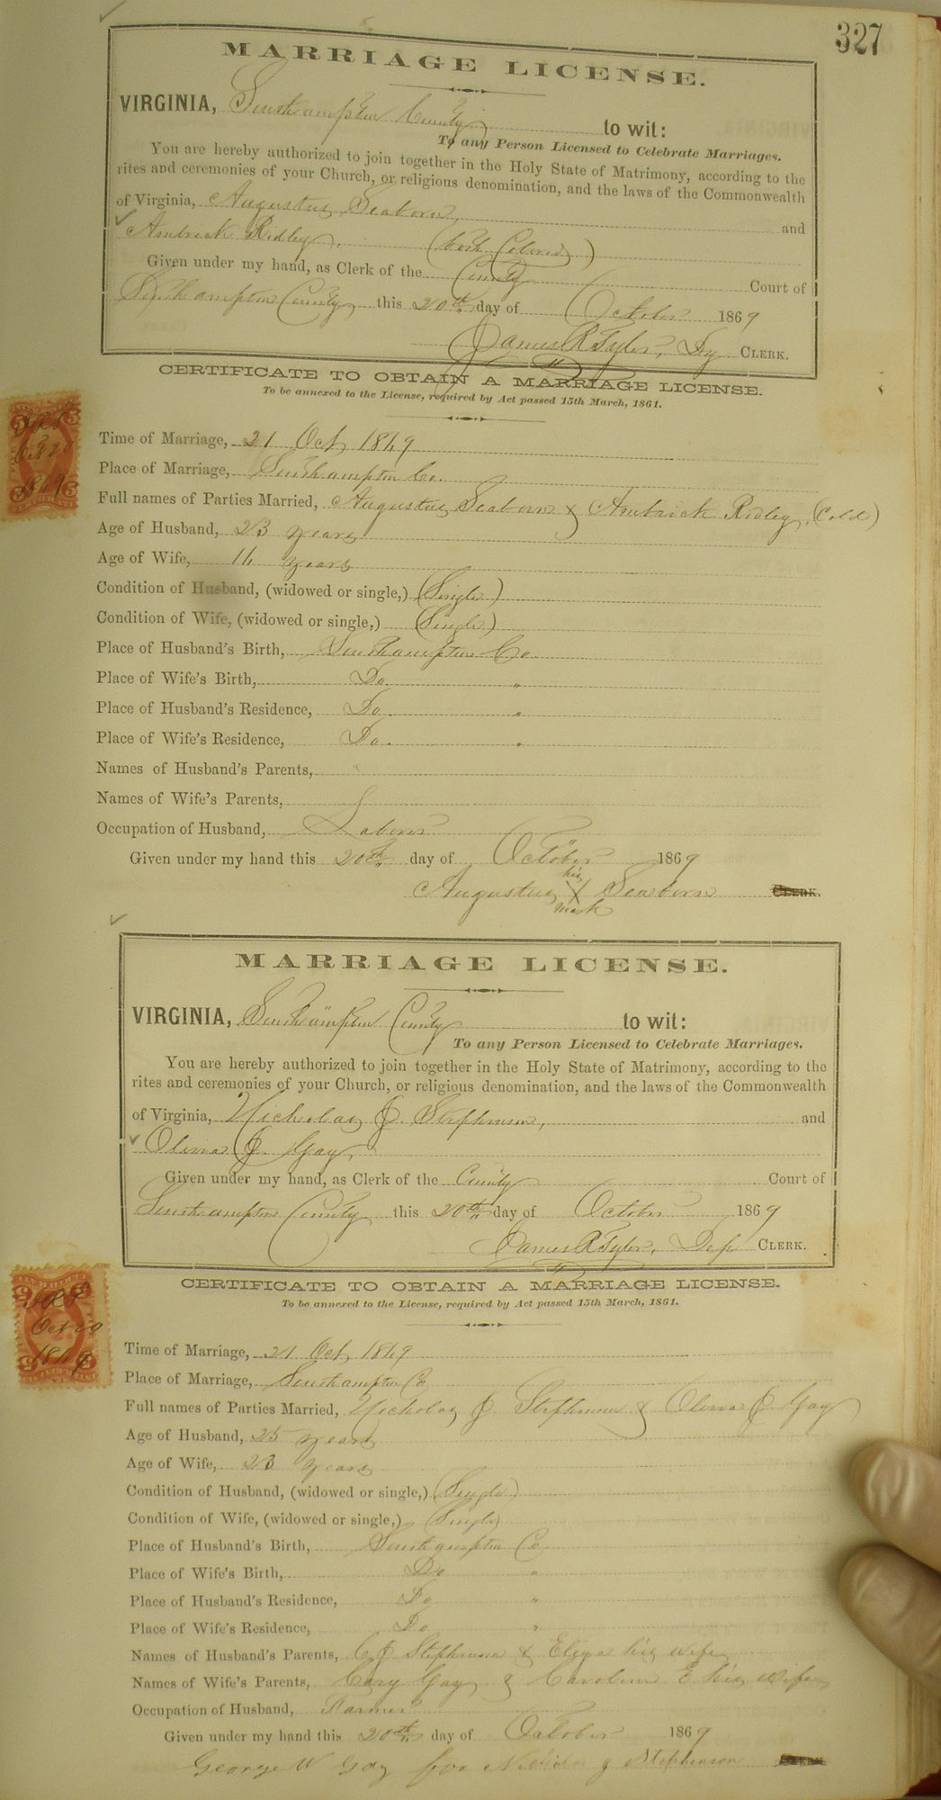 327
MARRIAGE LICENSE.
VIRGINIA, Southampton County to wit:
To any Person Licensed to Celebrate Marriages.
You are hereby authorized to join together in the Holy State of Matrimony, according to the
rites and ceremonies of your Church, or religious denomination, and the laws of the Commonwealth
of Virginia, Augustus Seaborn, and
Ambrick Ridley, (both Colored)
Given under my hand, as Clerk of the County Court of
Southampton County this 20th day of October 1869
James R Tyler, Dy CLERK.
CERTIFICATE TO OBTAIN A MARRIAGE LICENSE.
To be annexed to the License, required by Act passed 15th March, 1861.
Oct 20
1869
Time of Marriage, 21 Oct, 1869
Place of Marriage, Southampton Co.
Full names of Parties Married, Augustus Seaborn & Ambrick Ridley, (Cold)
Age of Husband, 23 years
Age of Wife, 16 years
Condition of Husband, (widowed or single,) (Single)
Condition of Wife, (widowed or single,) (Single)
Place of Husband's Birth, Southampton Co
Place of Wife's Birth, Do "
Place of Husband's Residence, Do "
Place of Wife's Residence, Do. "
Names of Husband's Parents,
Names of Wife's Parents,
Occupation of Husband, Laborer
Given under my hand this 20th day of October 1869
Augustus his X mark Seaborn CLERK.
MARRIAGE LICENSE.
VIRGINIA, Southampton County to wit:
To any Person Licensed to Celebrate Marriages.
You are hereby authorized to join together in the Holy State of Matrimony, according to the
rites and ceremonies of your Church, or religious denomination, and the laws of the Commonwealth
of Virginia, Nicholas J. Stephenson, and
Olivia J. Gay,
Given under my hand, as Clerk of the County Court of
Southampton County this 20th day of October 1869
James R Tyler, Dep CLERK.
CERTIFICATE TO OBTAIN A MARRIAGE LICENSE.
To be annexed to the License, required by Act passed 15th March, 1861.
Oct 20
1869
Time of Marriage, 21 Oct, 1869
Place of Marriage, Southampton Co
Full names of Parties Married, Nicholas J. Stephenson & Olivia J. Gay
Age of Husband, 25 years
Age of Wife, 23 years
Condition of Husband, (widowed or single,) (Single)
Condition of Wife, (widowed or single,) (Single)
Place of Husband's Birth, Southampton Co
Place of Wife's Birth, Do "
Place of Husband's Residence, Do "
Place of Wife's Residence, Do "
Names of Husband's Parents, J Stephenson & Eliza his wife
Names of Wife's Parents, Cary Gay & Caroline E his wife
Occupation of Husband, Farmer
Given under my hand this 20th day of October 1869
George W Gay for Nicholas J Stephenson